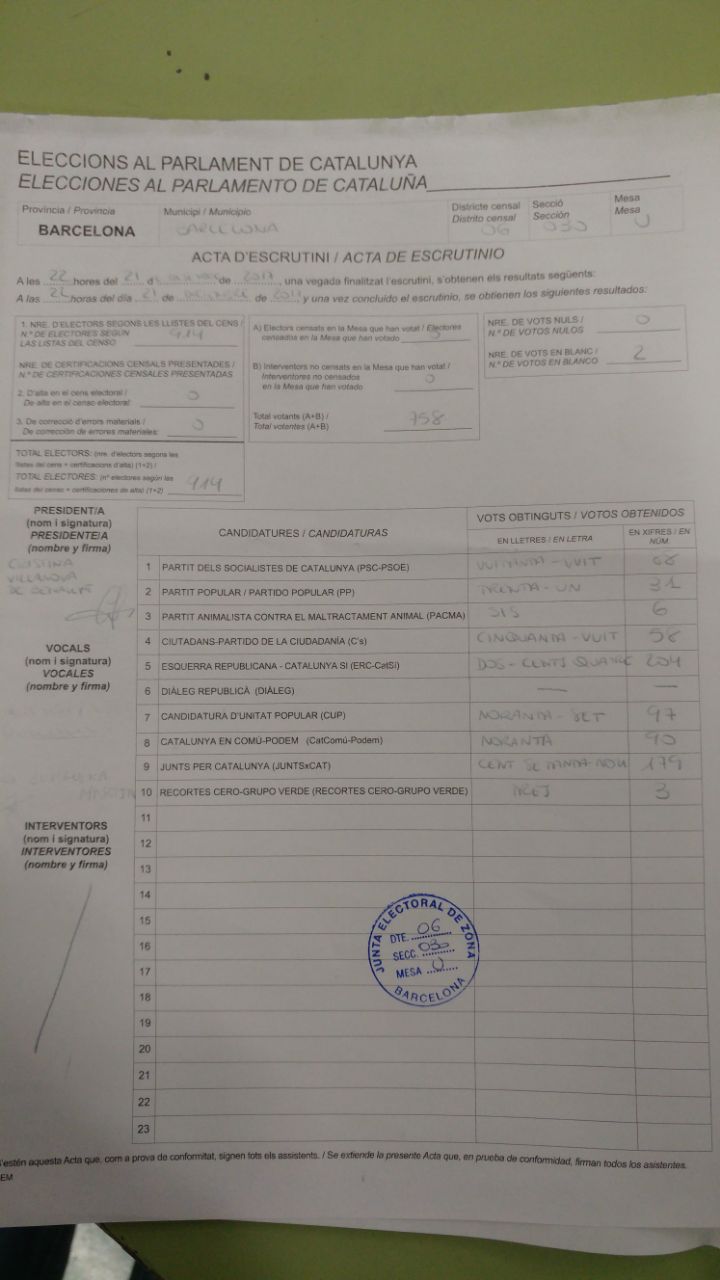 ELECCIONS AL PARLAMENT DE CATALUNYA
ELECCIONES AL PARLAMENTO DE CATALUÑA
Provincia / Provincia
BARCELONA
Municipi / Municipio
BARCELONA
Districte censal
Distrito censal
06
Secció
Sección
030
Mesa
Mesa
U
ACTA D'ESCRUTINI / ACTA DE ESCRUTINIO
A les 22 hores del 21 d de 2017, una vegada finalitzat l'escrutini, s'obtenen els resultats següents:
A las 22 horas del día 21 de de 2017 y una vez concluido el escrutinio, se obtienen los siguientes resultados:
1. NRE. D'ELECTORS SEGONS LES LLISTES DEL CENS /
N.º DE ELECTORES SEGÚN
LAS LISTAS DEL CENSO
914
NRE. DE CERTIFICACIONS CENSALS PRESENTADES /
N.º DE CERTIFICACIONES CENSALES PRESENTADAS
2. D'alta en el cens electoral /
De alta en el censo electoral:
0
3. De correcció d'errors materials /
De corrección de errores materiales:
0
TOTAL ELECTORS: (nre. d'electors segons les
llistes del cens + certificacions d'alta) (1+2) /
TOTAL ELECTORES: (nº electores según las
listas del censo + certificaciones de alta) (1+2)
914
A) Electors censats en la Mesa que han votat / Electores
censados en la Mesa que han votado
B) Interventors no censats en la Mesa que han votat /
Interventores no censados
en la Mesa que han votado
0
Total votants (A+B) /
Total votantes (A+B)
758
NRE. DE VOTS NULS /
N.º DE VOTOS NULOS
0
NRE. DE VOTS EN BLANC /
N.º DE VOTOS EN BLANCO
2
PRESIDENT/A
(nom i signatura)
PRESIDENTE/A
(nombre y firma)
CRISTINA
VILLANOVA
VOCALS
(nom i signatura)
VOCALES
(nombre y firma)
INTERVENTORS
(nom i signatura)
INTERVENTORES
(nombre y firma)
CANDIDATURES / CANDIDATURAS
VOTS OBTINGUTS / VOTOS OBTENIDOS
EN LLETRES / EN LETRA
EN XIFRES / EN NÚM.
1 PARTIT DELS SOCIALISTES DE CATALUNYA (PSC-PSOE) VUITANTA-VUIT 88
2 PARTIT POPULAR / PARTIDO POPULAR (PP) TRENTA-UN 31
3 PARTIT ANIMALISTA CONTRA EL MALTRACTAMENT ANIMAL (PACMA) SIS 6
4 CIUTADANS-PARTIDO DE LA CIUDADANÍA (C's) CINQUANTA-VUIT 58
5 ESQUERRA REPUBLICANA - CATALUNYA SI (ERC-CatSí) DOS-CENTS QUATRE 204
6 DIÀLEG REPUBLICÀ (DIÀLEG) — —
7 CANDIDATURA D'UNITAT POPULAR (CUP) NORANTA-SET 97
8 CATALUNYA EN COMÚ-PODEM (CatComú-Podem) NORANTA 90
9 JUNTS PER CATALUNYA (JUNTSxCAT) CENT SETANTA-NOU 179
10 RECORTES CERO-GRUPO VERDE (RECORTES CERO-GRUPO VERDE) TRES 3
11
12
13
14
15
16
17
18
19
20
21
22
23
JUNTA ELECTORAL DE ZONA
DTE. 06
SECC. 030
MESA U
BARCELONA
S'estén aquesta Acta que, com a prova de conformitat, signen tots els assistents. / Se extiende la presente Acta que, en prueba de conformidad, firman todos los asistentes.
EM